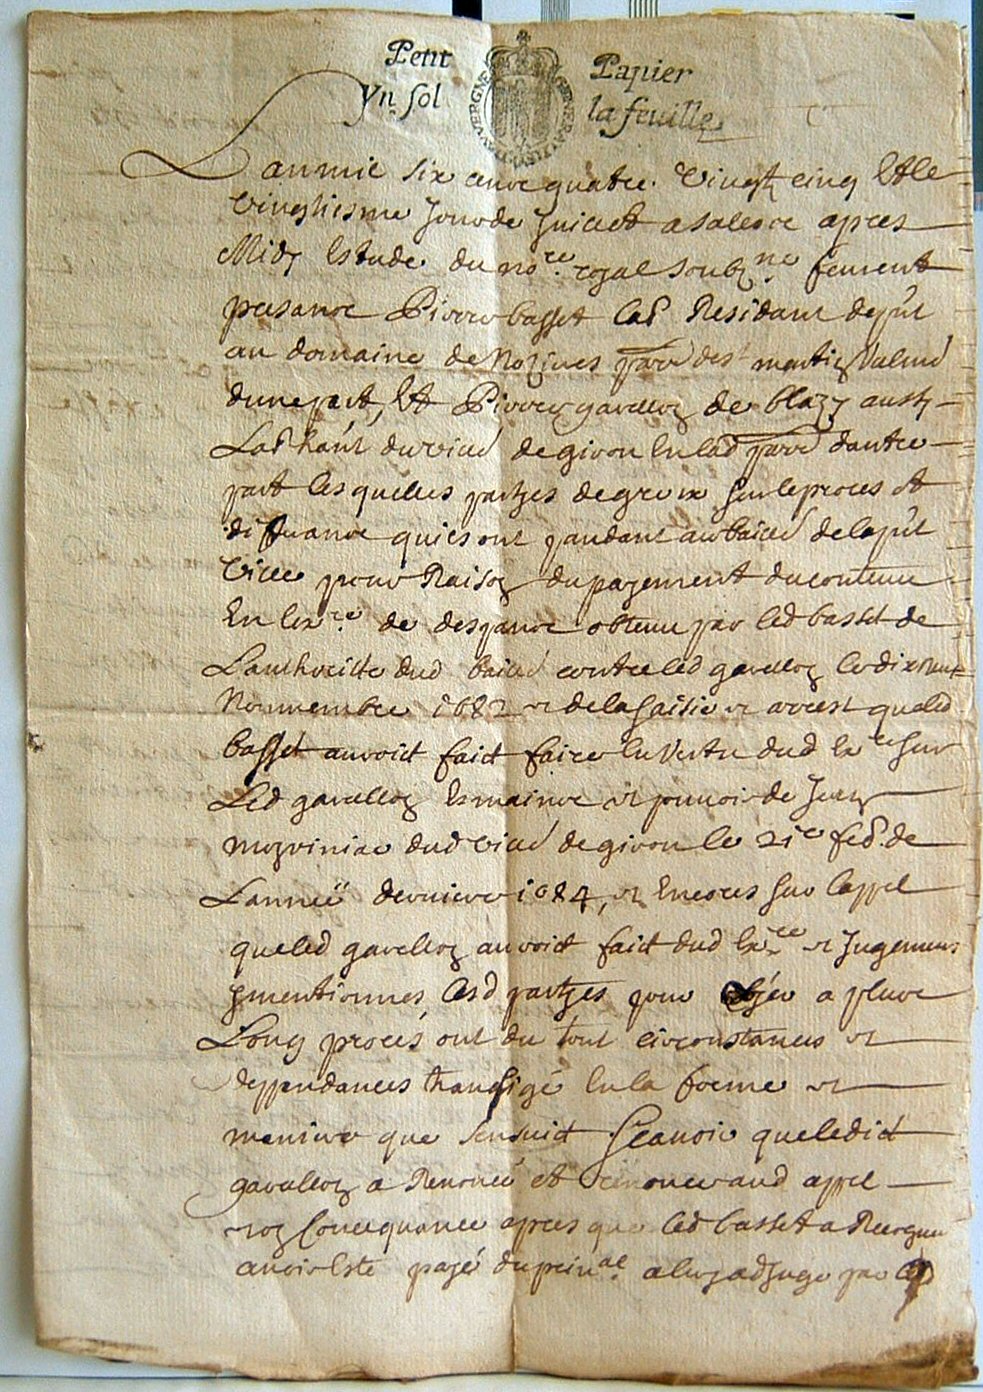 Petit Papier
Yn sol la feuille
Lan mil six cens quatre vingtz cinq et le
vingtiesme jour de juillet a salers apres
Midy Estude du no.re royal soubz.ne feurent
presans Pierre basset lab.r Residant dep.nt
au domaine de Nozieres parr.e de s.t martin Valmer.
dune part, Et Pierre gavelloz de blazy aussy
Lab. ha.nt du vill. de giron en lad parr.e dautre
part les quelles partyes de gre ex sur le proces et
differance qui est ont pandant au bail. de la p.nt
Ville pour Raison du payement du contenu
En lex.re de despans obtenu par led basset de
Lauthoritte dud bail. contre led gavelloz le dix
Nouuembre 1682 et de la saisie et arrest que led
basset auroict faict faire en vertu dud ex.re sur
Led gavelloz Es mains et pouuoir de Jean
dud vill. de giron le 21e feb. de
Lannee derniere 1684, et Encores sur lappel
que led gavelloz auroict faict dud ex.re et Jugemens
y mentionnes lesd partyes pour a plus
Long proces ont du tout circonstances et
deppandances transigé en la forme et
maniere que sensuict Scauoir que ledict
gavelloz a Renoncé et renonce aud appel
apres que led basset a Recogneu
auoir Esté payé du prin.al a luy adjugé par